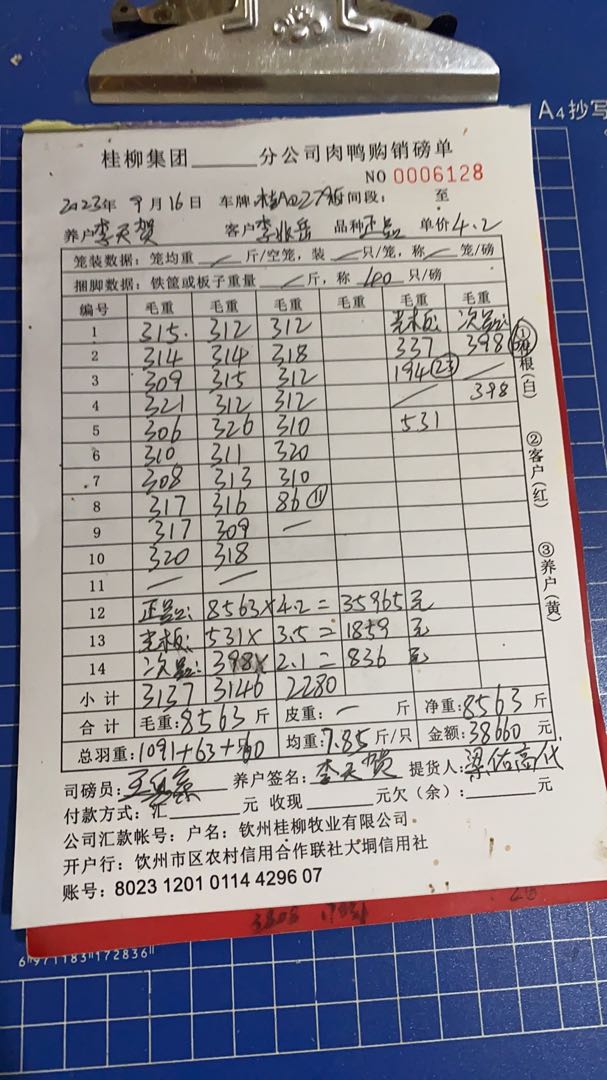 A4抄写
桂柳集团 分公司肉鸭购销磅单
NO 0006128
2023年 9月16日 车牌: 时间段: 至
养户 李天贺 客户 品种 正品 单价 4.2
笼装数据: 笼均重 / 斤/空笼, 装 / 只/笼, 称 / 笼/磅
捆脚数据: 铁筐或板子重量 / 斤, 称 140 只/磅
编号 毛重 毛重 毛重 毛重 毛重 毛重
1 315. 312 312 毛板: 次品:
2 314 314 318 337 398
3 309 315 312 194 /
4 321 312 312 / 398
5 306 326 310 531
6 310 311 320
7 308 313 310
8 317 316 86 ⑪
9 317 309 —
10 320 318
11 — —
12 正品: 8563×4.2=35965元
13 毛板: 531×3.5=1859元
14 次品: 398×2.1=836元
小计 3137 3146 2280
合计 毛重: 8563斤 皮重: — 斤 净重: 8563斤
总羽重: 1091+63+60 均重: 7.85斤/只 金额: 38660元
司磅员: 养户签名: 李天贺 提货人:
付款方式: 汇 元 收现 元欠(余): 元
公司汇款帐号: 户名: 钦州桂柳牧业有限公司
开户行: 钦州市区农村信用合作联社大垌信用社
账号: 8023 1201 0114 4296 07
①存根(白)
②客户(红)
③养户(黄)
6"971183"172836"